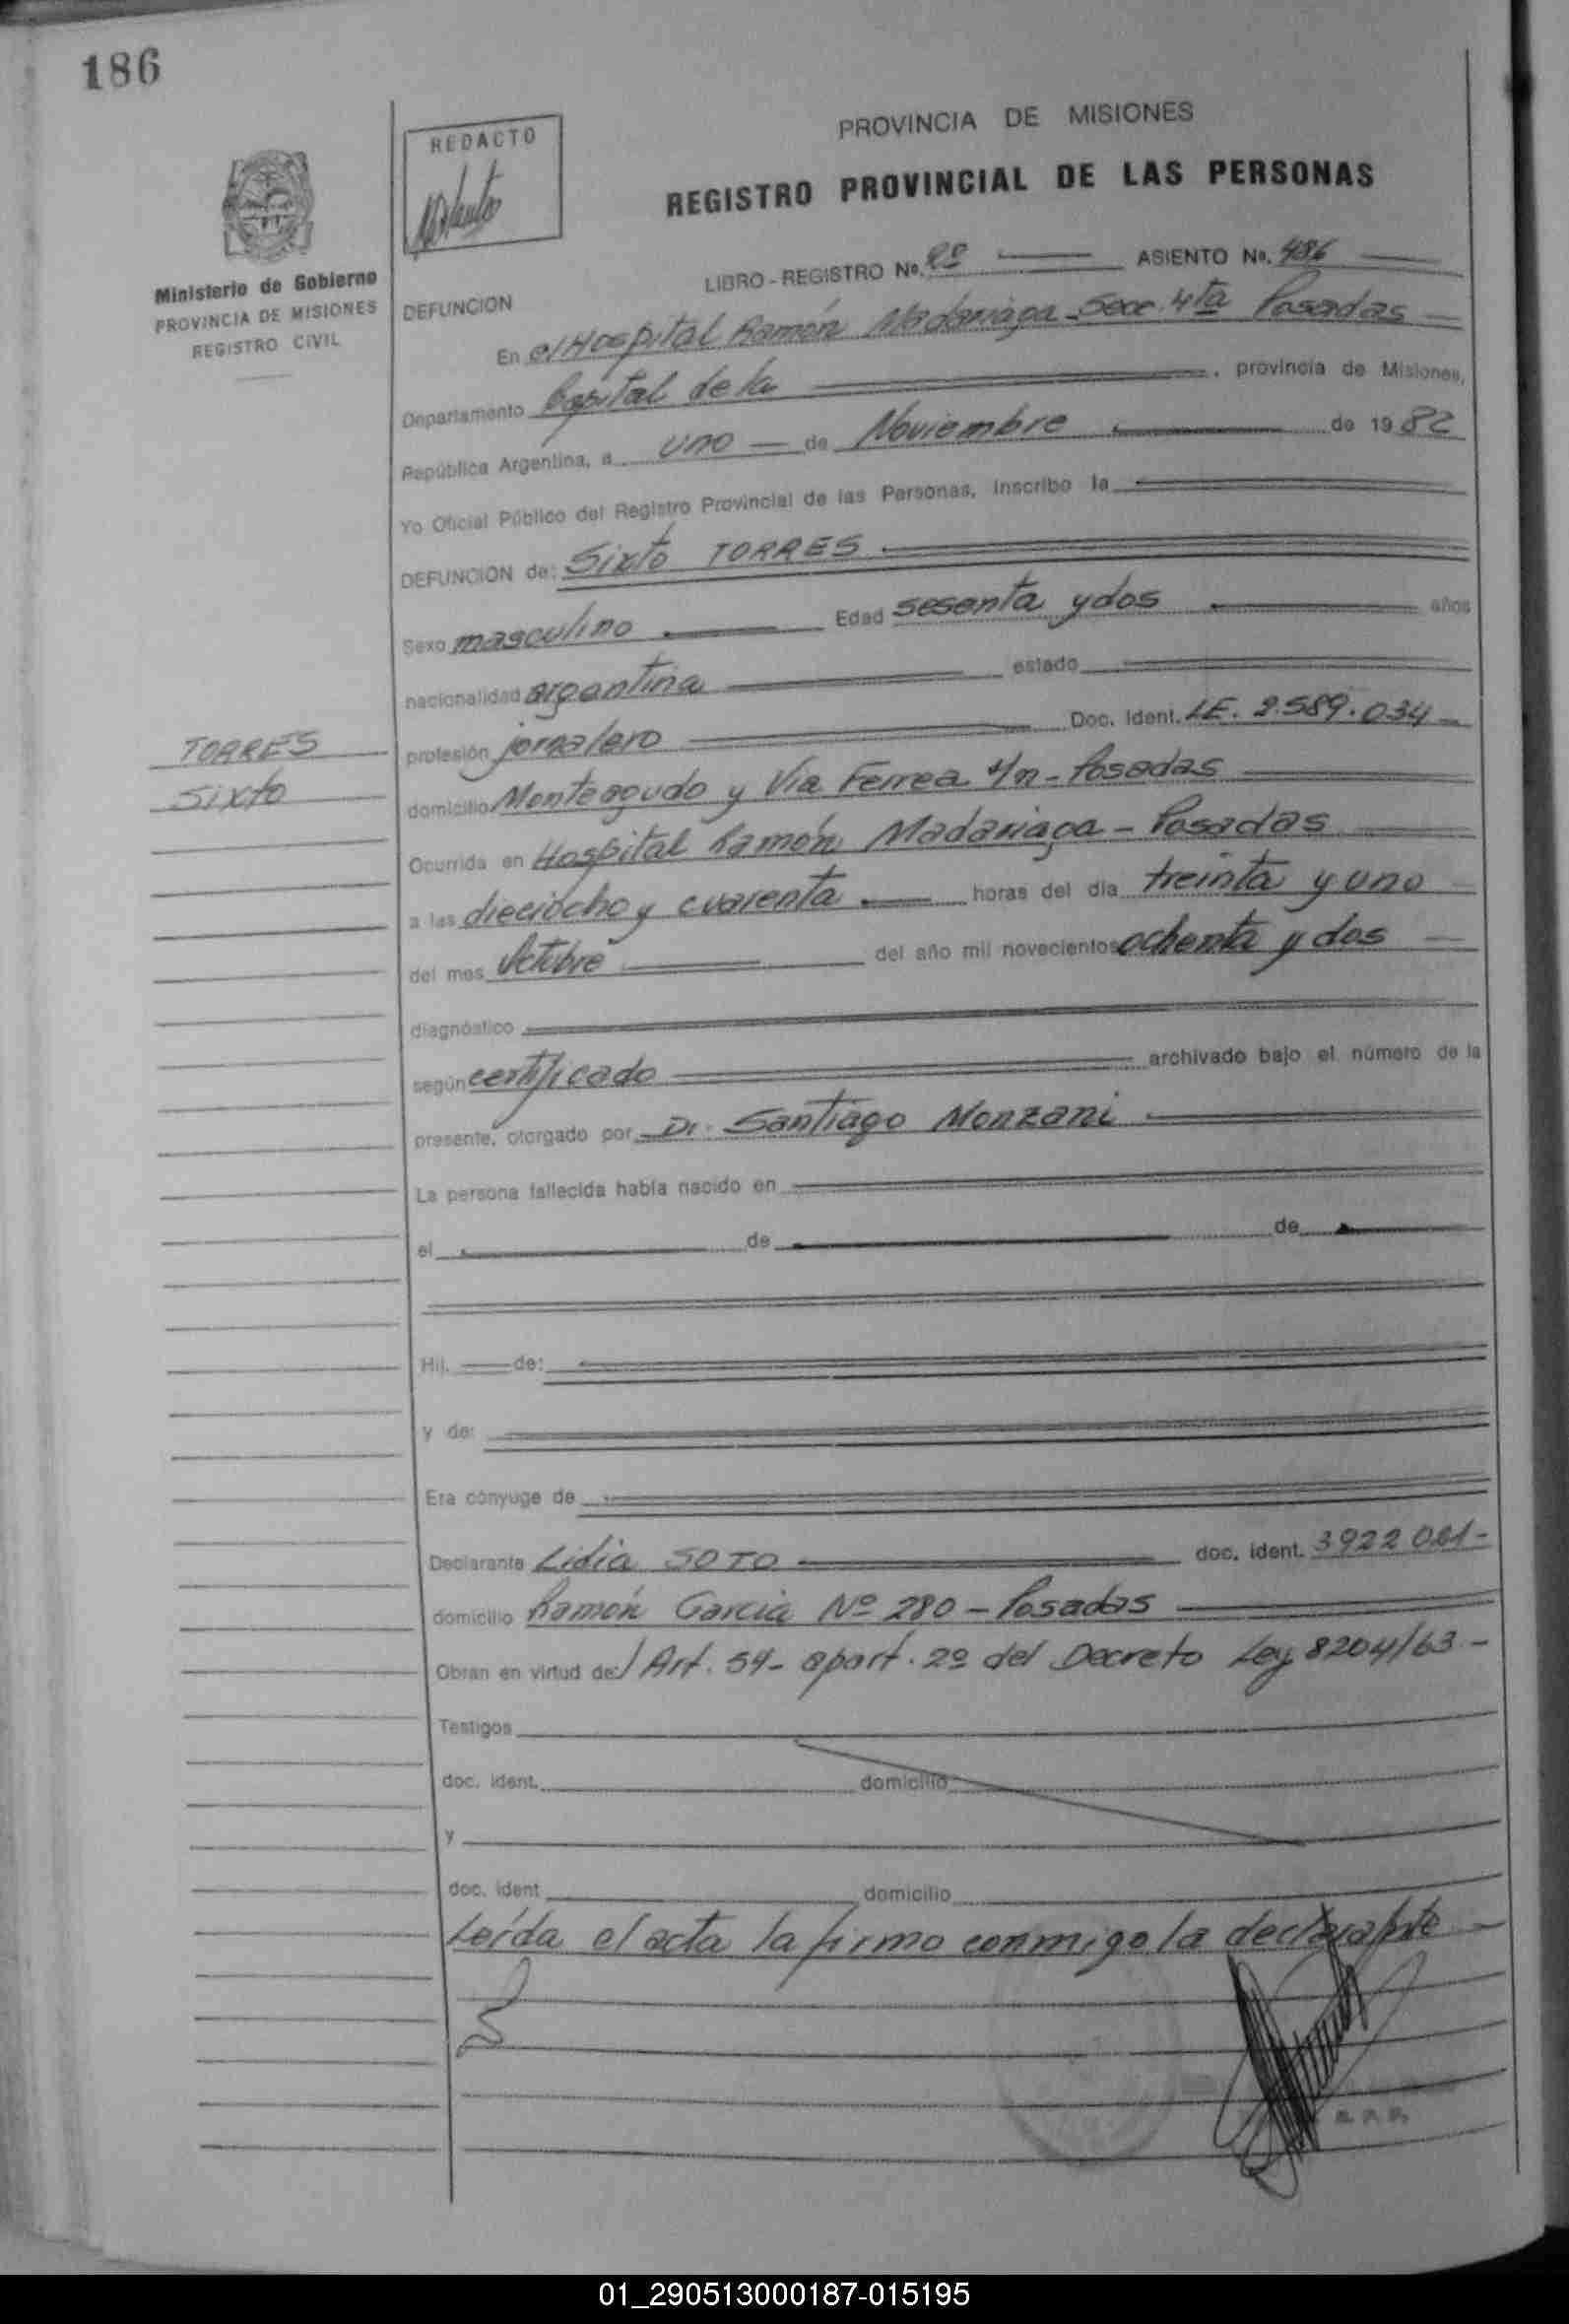 186
REDACTO
PROVINCIA DE MISIONES
REGISTRO PROVINCIAL DE LAS PERSONAS
Ministerio de Gobierno
PROVINCIA DE MISIONES
REGISTRO CIVIL
LIBRO - REGISTRO No. 2º ASIENTO No. 486
DEFUNCION
En el Hospital Ramón Madariaga - Secc. 4ta Posadas
Departamento Capital de la , provincia de Misiones,
República Argentina, a uno de Noviembre de 1982
Yo Oficial Público del Registro Provincial de las Personas, inscribo la
DEFUNCION de: Sixto TORRES
Sexo masculino Edad sesenta y dos años
nacionalidad argentina estado
TORRES
Sixto
profesión jornalero Doc. Ident. L.E. 2.589.034
domicilio Monteagudo y Vía Ferrea s/n - Posadas
Ocurrida en Hospital Ramón Madariaga - Posadas
a las dieciocho y cuarenta horas del día treinta y uno
del mes Octubre del año mil novecientos ochenta y dos
diagnóstico
según certificado archivado bajo el número de la
presente, otorgado por Dr. Santiago Monzani
La persona fallecida había nacido en
el de de
Hij. de:
y de:
Era cónyuge de
Declarante Lidia SOTO doc. ident. 3922081-
domicilio Ramón Garcia Nº 280 - Posadas
Obran en virtud del Art. 54- apart. 2º del Decreto Ley 8204/63.-
Testigos
doc. ident. domicilio
y
doc. ident domicilio
Leída el acta la firmo conmigo la declarante
01_290513000187-015195